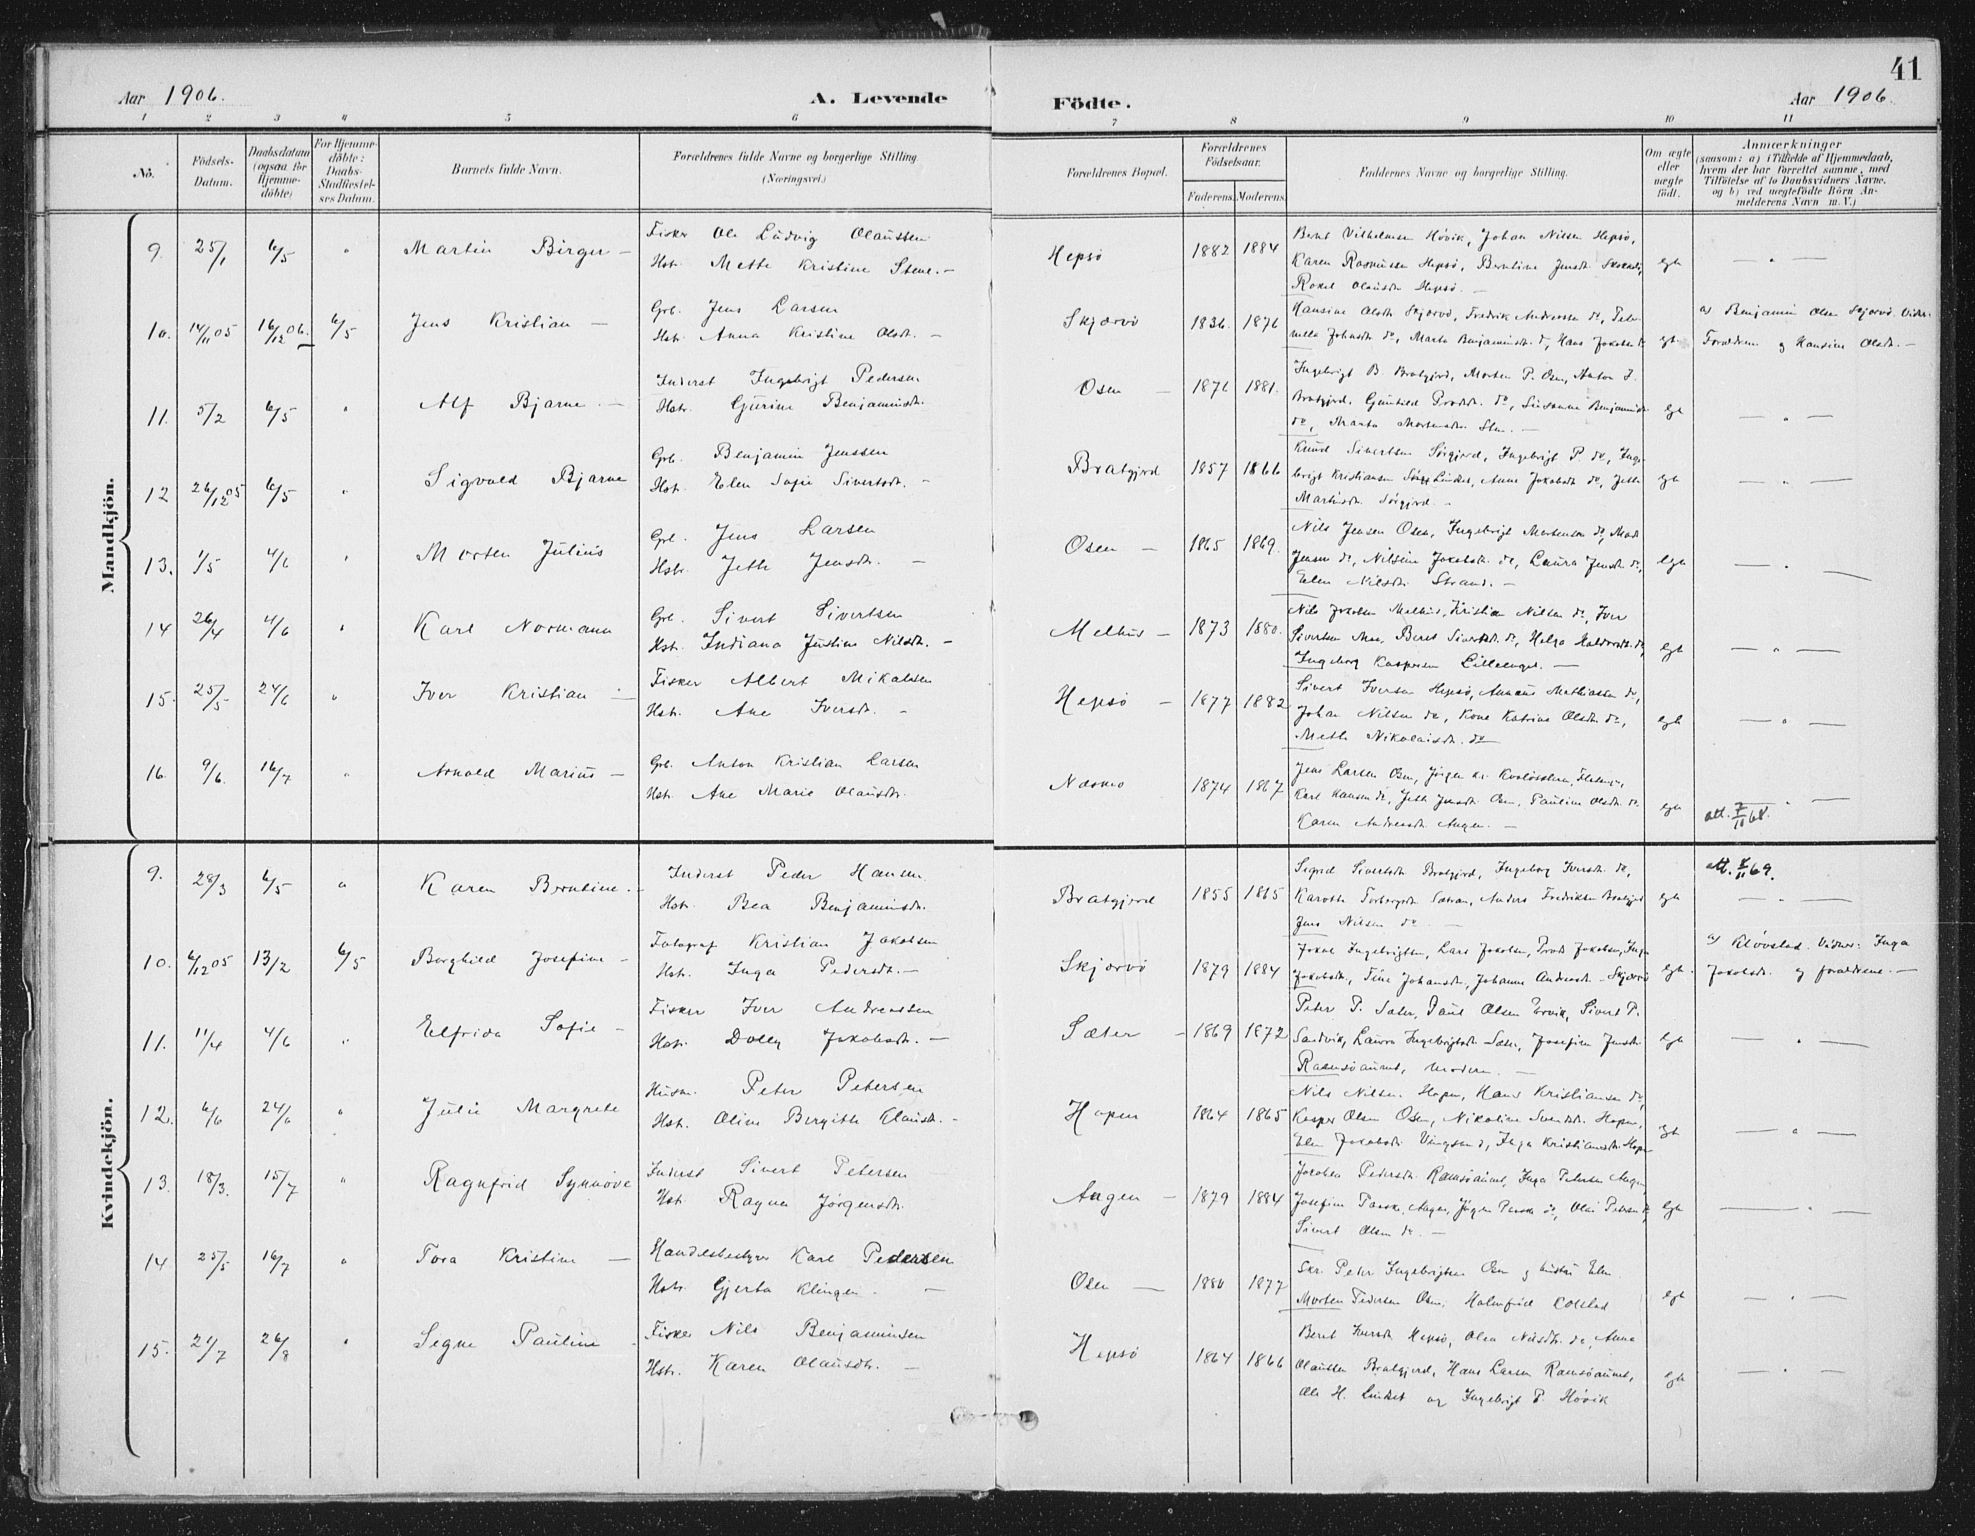 41
Aar 1906. A. Levende Födte. Aar 1906.
1 2 3 4 5 6 7 8 9 10 11
No. Födsels-Datum. Daabsdatum (ogsaa for Hjemme-döbte) For Hjemme-döbte: Daabs-Stadfæstel-ses Datum. Barnets fulde Navn. Forældrenes fulde Navne og borgerlige Stilling. (Næringsvei.) Forældrenes Bopæl. Forældrenes Födselsaar. Faderens. Moderens. Faddernes Navne og borgerlige Stilling. Om ægte eller uægte födt. Anmærkninger
(saasom: a) i Tilfælde af Hjemmedaab,
hvem der har forrettet samme, med
Tilföielse af to Daabsvidners Navne,
og b) ved uægtefödte Börn An-
melderens Navn m. V.)
Mandkjön.
9. 25/1 6/5 " Martin Birger — Fisker Ole Ludvig Olaussen
Hst. Mette Kristine Stene. — Hepsö 1882 1884 Bernt Vilhelmsen Hövik, Johan Nilsen Hepsö,
Karen Rasmussen Hepsö, Berntine Jensdt.
Olausdt. Hepsö. — egte — " —
10. 14/11 05 16/12 06. 6/5 Jens Kristian — Grb. Jens Larsen
Hst. Anna Kristine Olsdt. — Skjærvö 1836. 1876 Hansine Olsdt. Skjærvö, Fredrik Andersen do, Petr-
nella Johnsdt. do, Marta Benjaminsdt. do, Hans Jakobsen do egt a) Benjamin Olsen Skjærvö. Vidn:
Forældrene og Hansine Olsdt. —
11. 5/2 6/5 " Alf Bjarne. — Inderst Ingebrigt Pedersen
Hst. Gjurine Benjaminsdt. Osen — 1876 1881. Ingebrigt B. Bratgjerd, Morten P. Osen, Anton J.
Bratgjerd, Gunhild do, Susanna Benjaminsdt.
do, Marta Mortensdt. — egt — " —
12 26/12 05 6/5 " Sigvald Bjarne Grb. Benjamin Jenssen
Hst. Elen Sofie Sivertsdt. — Bratgjerd 1857 1866 Knud Sivertsen Sörgjerd, Ingebrigt P. do, Inge-
brigt Kristiansen Lindset, Anne Jakobsdt. do, Jette
Martinsdt. Sörgjerd. — egt — " —
13. 1/5 4/6 " Morten Julius Grb. Jens Larsen
Hst. Jette Jensdt. — Osen — 1865 1869. Nils Jensen Osen, Ingebrigt Mortensen do,
Jensen do, Nilsine Jakobsdt. do, Laura Jensdt. do,
Elen Nilsdt. Strand. — egte — " —
14 26/4 4/6 " Karl Normann Grb. Sivert Sivertsen
Hst. Indiana Justine Nilsdt. — Melhus — 1873 1880. Nils Jakobsen Melhus, Kristian Nilsen do, Iver
Sivertsen Moe, Beret Sivertsdt. do, Helga do,
Ingeborg Kaspersen Lilleenget. — egt — " —
15. 25/5 24/6 " Iver Kristian — Fisker Albert Mikalsen
Hst. Ane Iversdt. — Hepsö — 1877 1882 Sivert Iversen Hepsö, Mathiassen do,
Johan Nilsen do, Kone Katrine Olsdt. do,
Mette Nikolaisdt. do egt — " —
16. 9/6. 16/7 " Arnold Marius — Grb. Anton Kristian Larsen
Hst. Ane Marie Olausdt. Næsmo 1874 1867 Jens Larsen Osen, Jörgen
Karl Hansen do, Jette Jensdt. Osen, Pauline Olsdt. do
Karen Andreasdt. Angen. — egt " —
att. 7/11 68.
Kvindekjön.
9. 28/3 6/5 " Karen Berntine. Inderst Peder Hansen
Hst. Bea Benjaminsdt. Bratgjerd 1855 1865 Sigrid Sivertsdt. Bratgjerd, Ingeborg Iversdt. do,
Karoth Torbergsdt. Sætran, Anders Fredriksen Bratgjerd
Jens Nilsen do — egt att. 5/11 69.
— " —
10. 6/12 05 13/2 6/5 Borghild Josefine — Fotograf Kristian Jakobsen
Hst. Inga Pedersdt. — Skjærvö 1879 1884 Jakob Ingebrigtsen, Lars Jakobsen, Jakobsen, Inga
Jakobsdt., Tine Johansdt., Johanna Andreasdt. Skjærvö egt. a) Klövstad. Vidner: Inga
Jakobsdt. og forældrene. —
11. 11/4 4/6 " Elfrida Sofie — Fisker Iver Andreassen
Hst. Dolly Jakobsdt. — Sæter — 1869 1872 Peter P. Sæter, Paul Olsen Ervik, Sivert P.
Sandvik, Laura Ingebrigtsdt. Sæter, Josefine Jensdt.
Ramsöaunet, Moderen. — egt — " —
12. 6/6 24/6 " Julie Margrete Husm. Peter Petersen
Hst. Oline Bergitte Olausdt. — Hopen 1864 1865 Nils Nilsen Hopen, Hans Kristiansen do,
Kasper Olsen Osen, Nikoline Svendsdt. Hopen,
Elen Jakobsdt. Vingsand, Inga Kristiansdt. Hopen egt — " —
13. 18/3. 15/7 " Ragnfrid Synnöve Inderst Sivert Petersen
Hst. Ragna Jörgensdt. Angen — 1879 1884 Jakobea Pedersdt. Ramsöaunet, Inga Petersen Angen,
Josefine Angen, Jörgen do, Olai Petersen do,
Sivert Olsen do. — egt — " —
14 25/5 16/7 " Tora Kristine — Handelsbestyrer Karl Pedersen
Hst. Gjerta Klingen. — Osen — 1880 1877 Skr. Peter Ingebrigtsen Osen og hustru Elen.
Morten Pedersen Osen, Halmfrid Kolstad egt — " —
15. 21/7 26/8 " Segne Pauline — Fisker Nils Benjaminsen
Hst. Karen Olausdt. — Hepsö 1864 1866 Beret Iversdt. Hepsö, Olea Nilsdt. do, Anna
Olaussen Bratgjerd, Hans Larsen Ramsöaunet,
Ole H. Lindset og Ingebrigt P. Hövik egt — " —